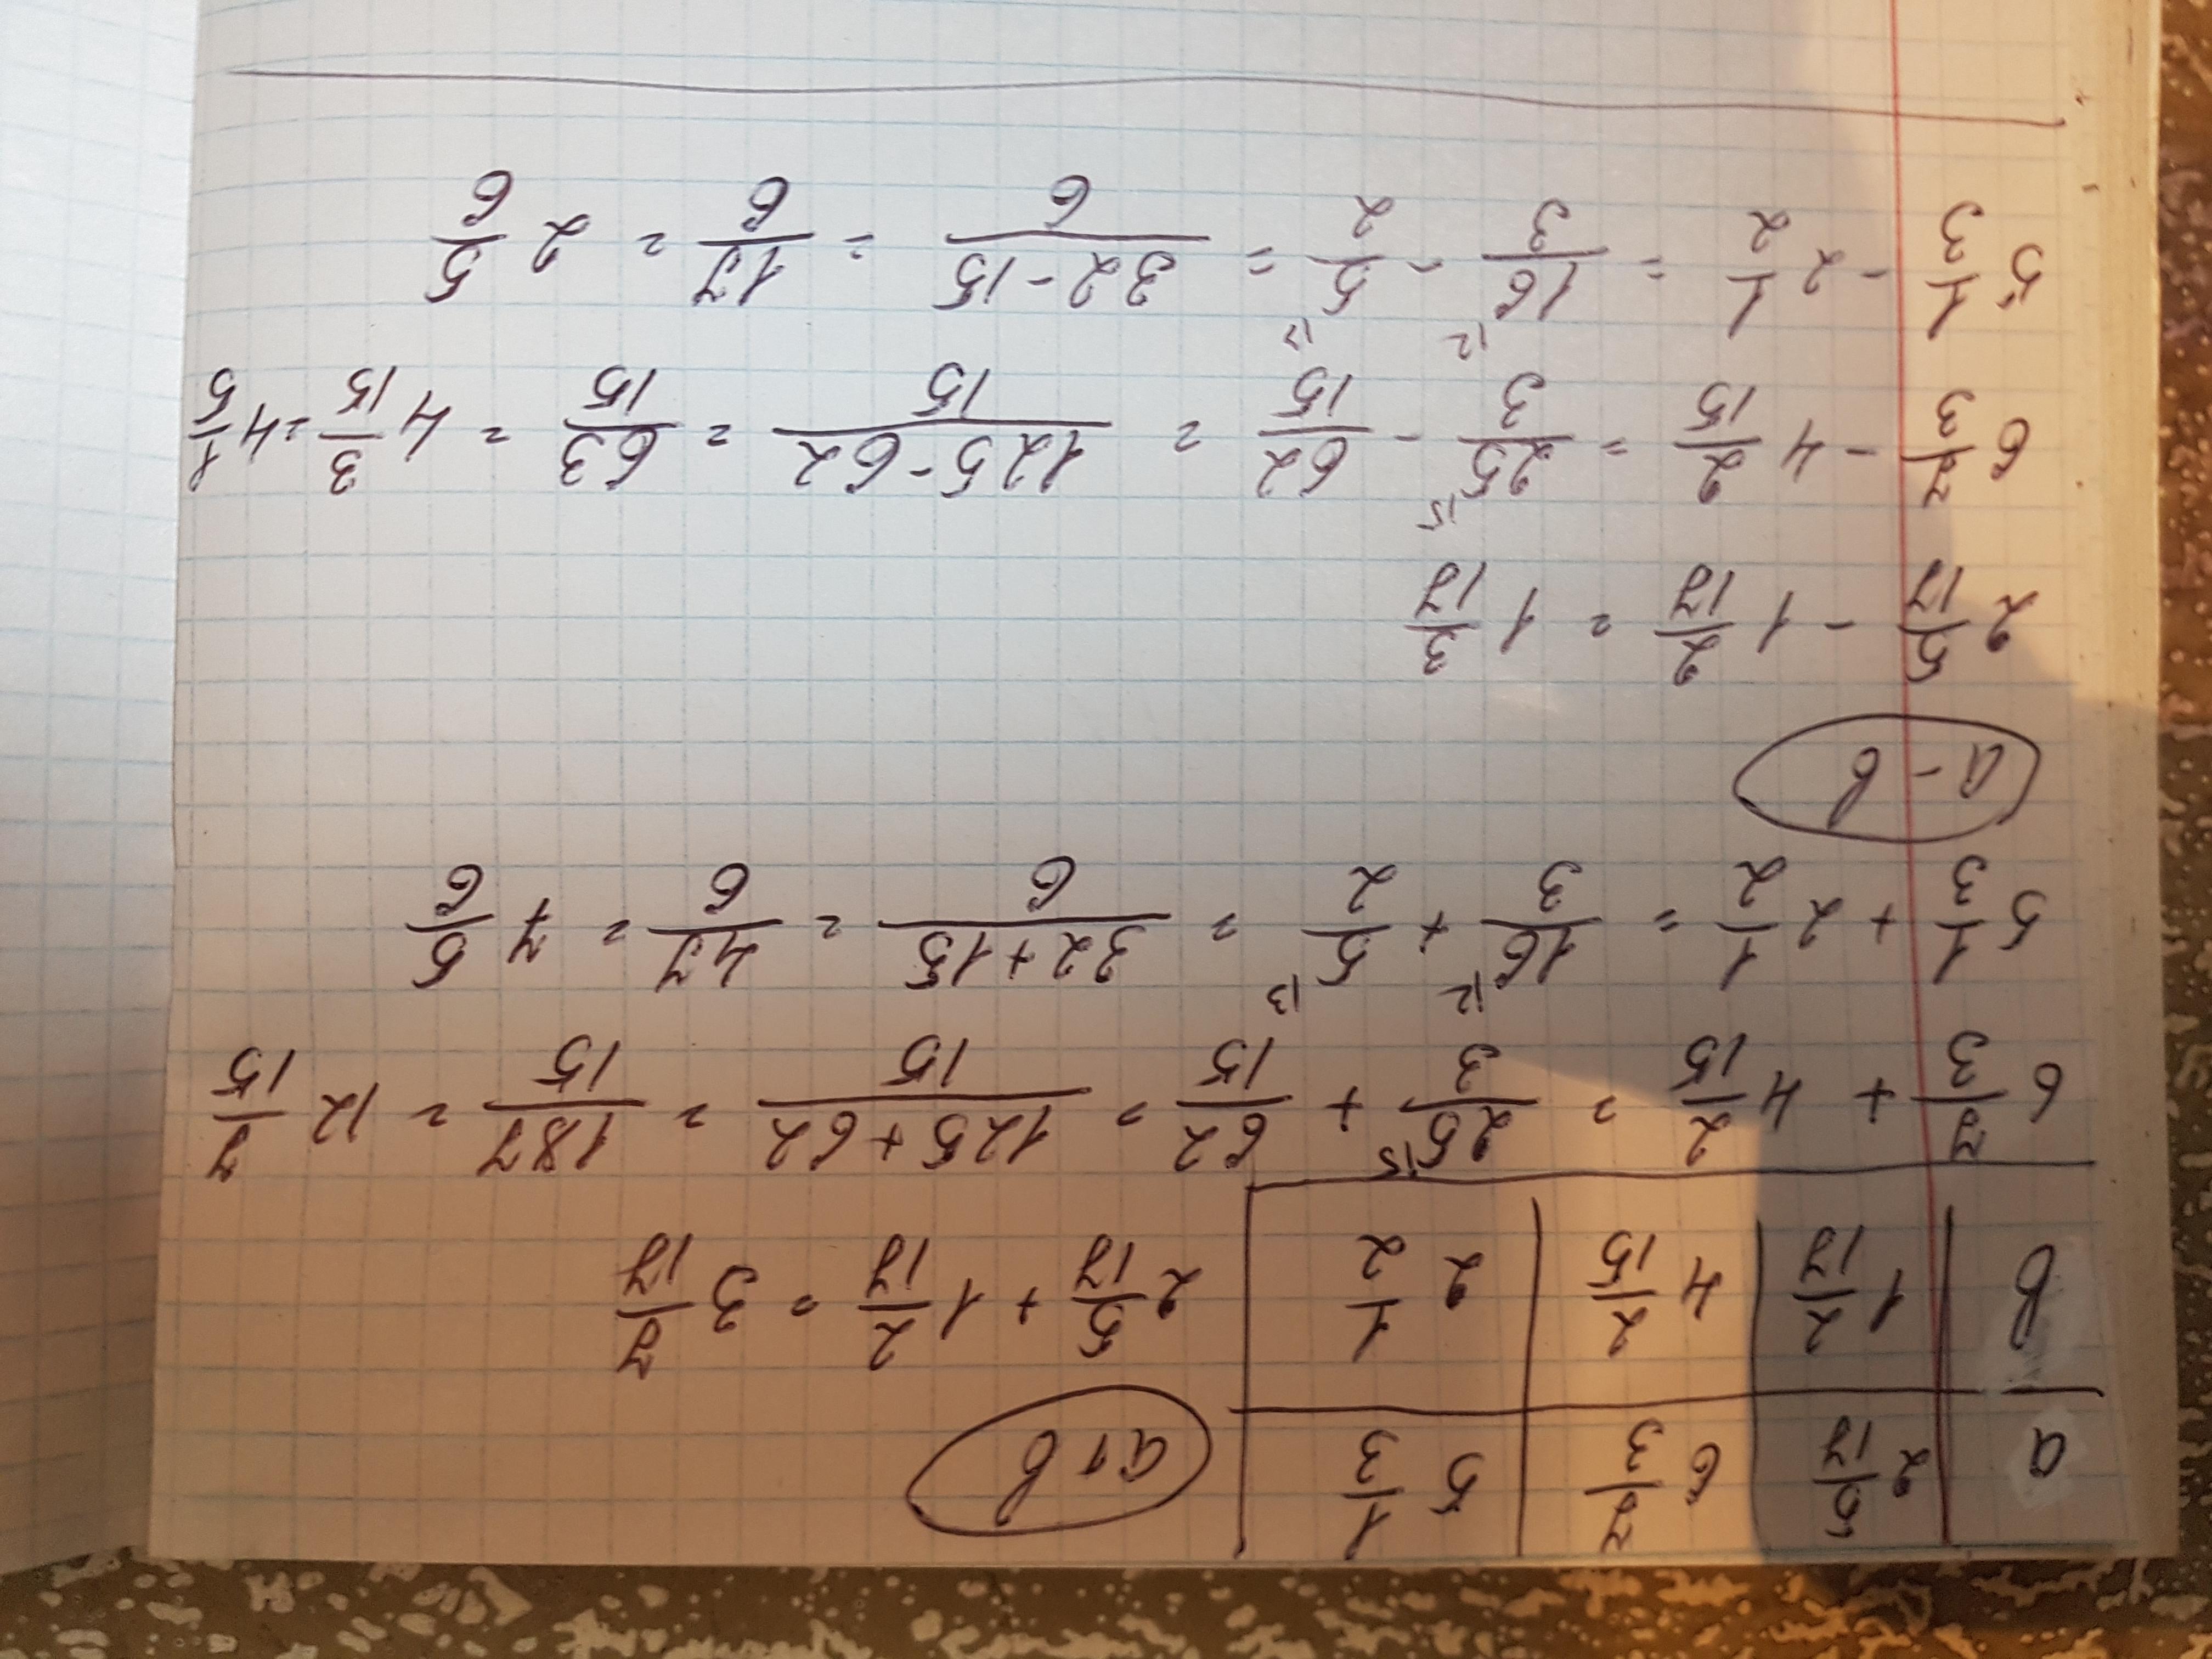 a | 2 5/17 | 6 7/3 | 5 1/3 | a+b
b | 1 2/17 | 4 2/15 | 2 1/2 | 2 5/17 + 1 2/17 = 3 7/17
6 7/3 + 4 2/15 = 25/3 |5 + 62/15 = 125+62/15 = 187/15 = 12 7/15
5 1/3 + 2 1/2 = 16/3 |2 + 5/2 |3 = 32+15/6 = 47/6 = 7 5/6
a-b
2 5/17 - 1 2/17 = 1 3/17
6 7/3 - 4 2/15 = 25/3 |5 - 62/15 = 125-62/15 = 63/15 = 4 3/15 = 4 1/5
5 1/3 - 2 1/2 = 16/3 |2 - 5/2 |3 = 32-15/6 = 17/6 = 2 5/6